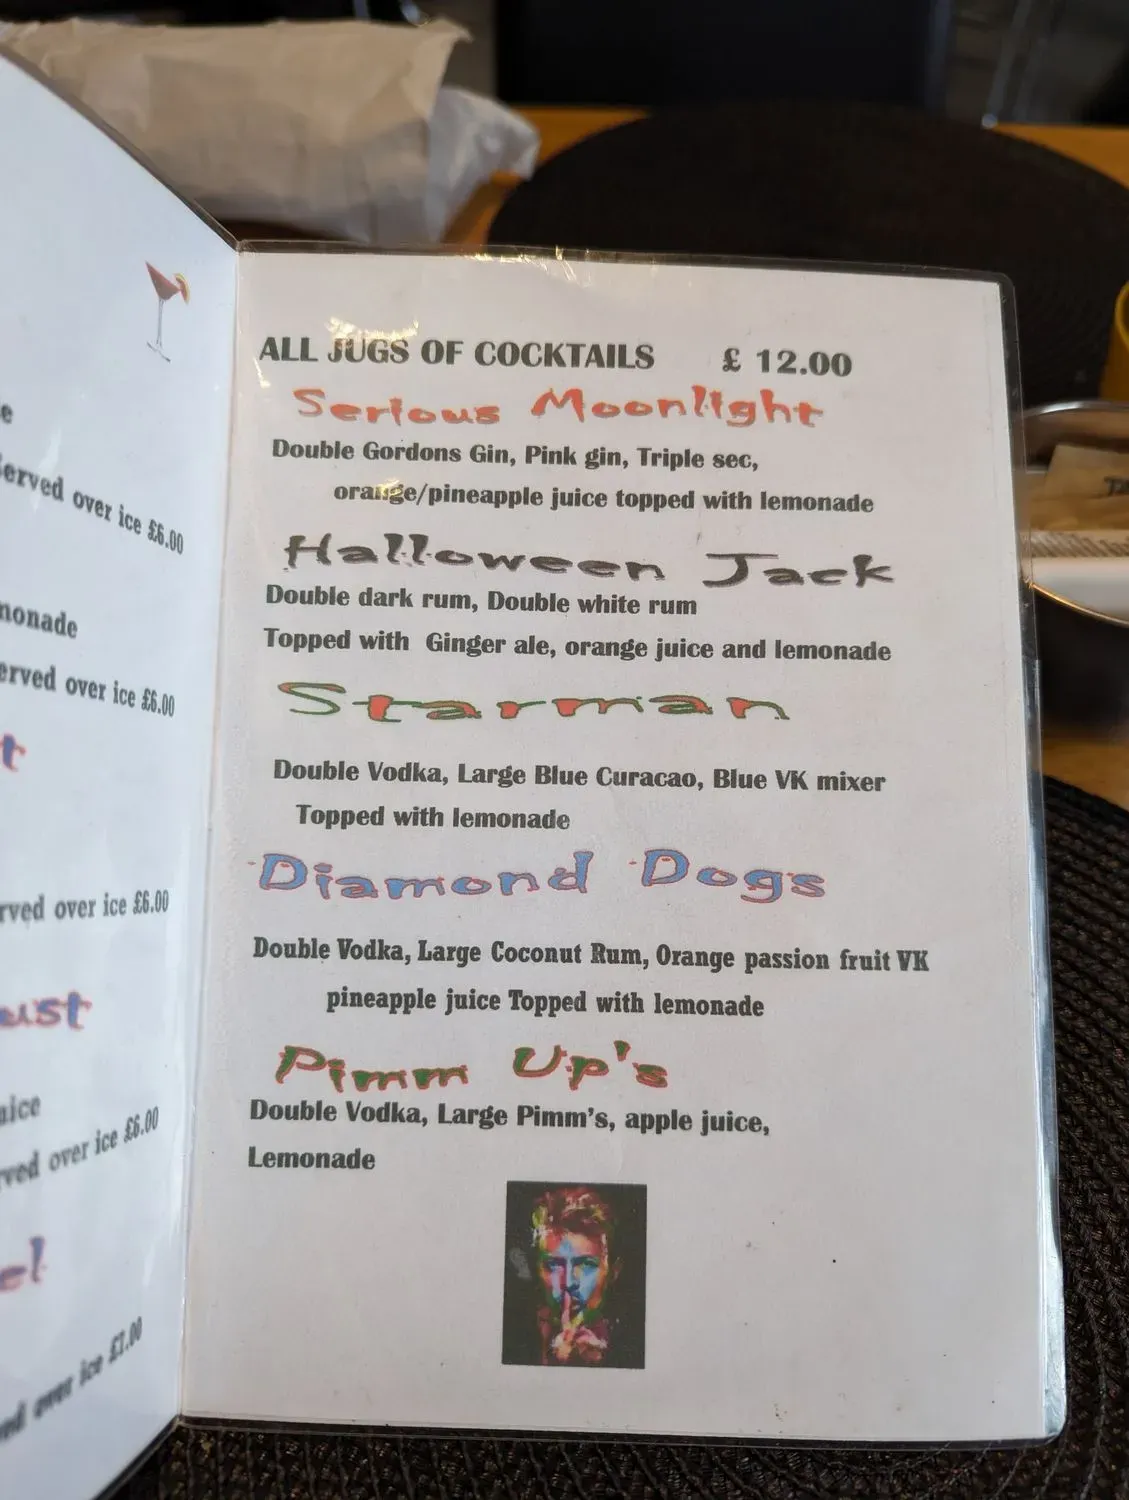 erved over ice £6.00
monade
erved over ice £6.00
rved over ice £6.00
ust
rved over ice £6.00
el
ed over ice £7.00
ALL JUGS OF COCKTAILS £ 12.00
Serious Moonlight
Double Gordons Gin, Pink gin, Triple sec,
orange/pineapple juice topped with lemonade
Halloween Jack
Double dark rum, Double white rum
Topped with Ginger ale, orange juice and lemonade
Starman
Double Vodka, Large Blue Curacao, Blue VK mixer
Topped with lemonade
Diamond Dogs
Double Vodka, Large Coconut Rum, Orange passion fruit VK
pineapple juice Topped with lemonade
Pimm Up's
Double Vodka, Large Pimm's, apple juice,
Lemonade